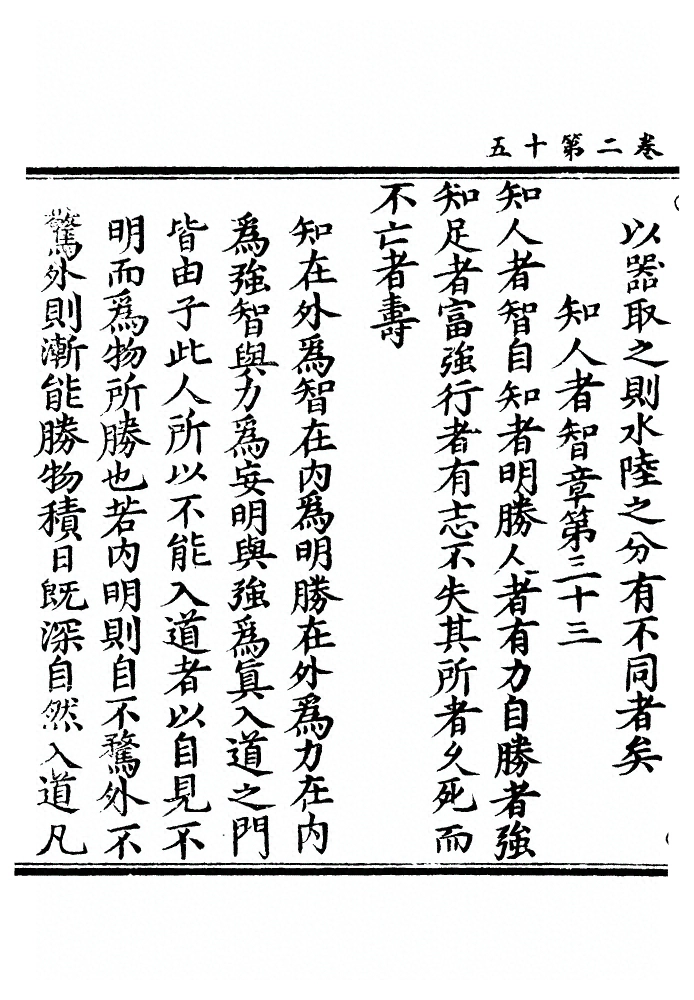 卷二第十五
以器取之則水陸之分有不同者矣
知人者智章第三十三
知人者智自知者明勝人者有力自勝者強
知足者富強行者有志不失其所者久死而
不亡者壽
知在外爲智在内爲明勝在外爲力在内
爲強智與力爲妄明與強爲真入道之門
皆由于此人所以不能入道者以自見不
明而爲物所勝也若内明則自不騖外不
騖外則漸能勝物積日既深自然入道凡